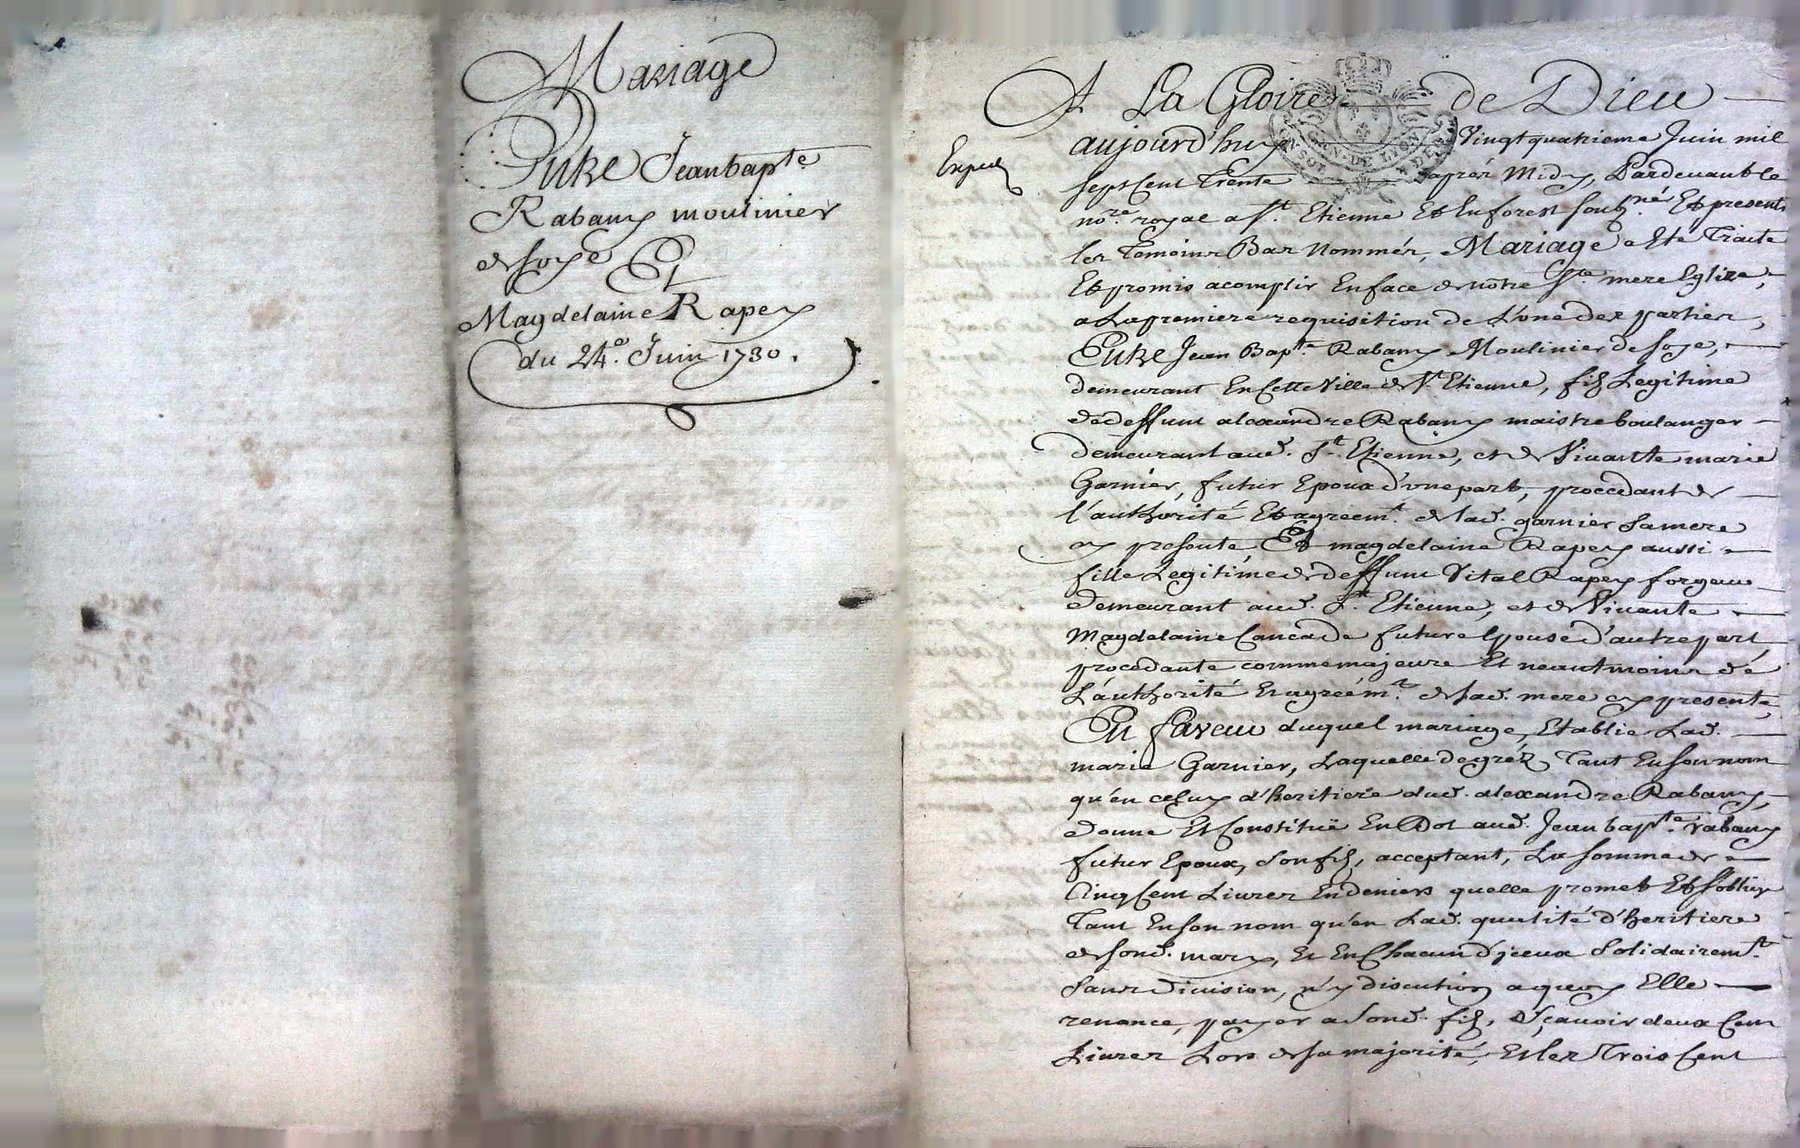 Mariage
Entre Jean bapte
Rabany moulinier
de soye Et
Magdelaine Rapey
du 24e. Juin 1730.
A La Gloire de Dieu
Expedié
aujourd'huy Vingt quatrieme Juin mil
sept Cent Trente aprés Midy, Pardevant le
nore. royal a St. Etienne Et En forest soubzné Et presents
les Temoins Bas Nommés, Mariage a Eté Traité
Et promis acomplir En face de notre Ste. mere Eglize,
a La premiere requisition de L'une des parties,
Entre Jean Bapte. Rabany Moulinier de soye,
demeurant En Cette Ville de St. Etienne, fils Legitime
de deffunt alexandre Rabany maistre boulanger
demeurant aud. St. Etienne, et de Vivante marie
Garnier, futur Epoux d'une part, procedant de
l'authorité Et agreemt. de lad. garnier sa mere
cy presente, Et magdelaine Rapey aussi
fille Legitime de deffunt Vital Rapey forgeur
demeurant aud. St. Etienne, et de Vivante
Magdelaine Cancade future Epouse d'autre part,
procedante comme majeure Et neantmoins de
L'authorité Et agréemt. de sad. mere cy presente,
En faveur duquel mariage, Etablie Lad.
marie Garnier, Laquelle de gréz Tant En son nom
qu'en celuy d'heritiere dud. alexandre Rabany,
donne Et Constituë En Dot aud. Jean bapte. rabany
futur Epoux, son fils, acceptant, La somme de
Cinq Cent Livres En deniers quelle promet Et s'oblige
Tant En son nom qu'en Lad. qualité d'heritiere
de sond. mary, Et En Chacun d'jceux solidairemt.
sans division, n'y discution a quoy Elle
renonce, payer a sond. fils, Sçavoir deux Cent
Livres Lors de sa majorité, Et les Trois Cent